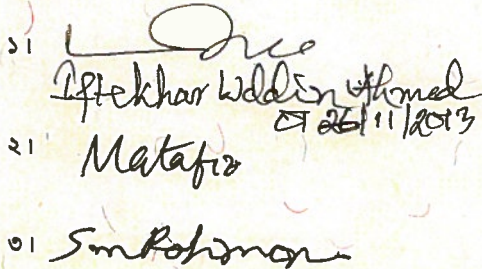 ১।
Iftekhar Uddin Ahmed
26/11/2013
২। Matafiz
৩। Sm Rahman